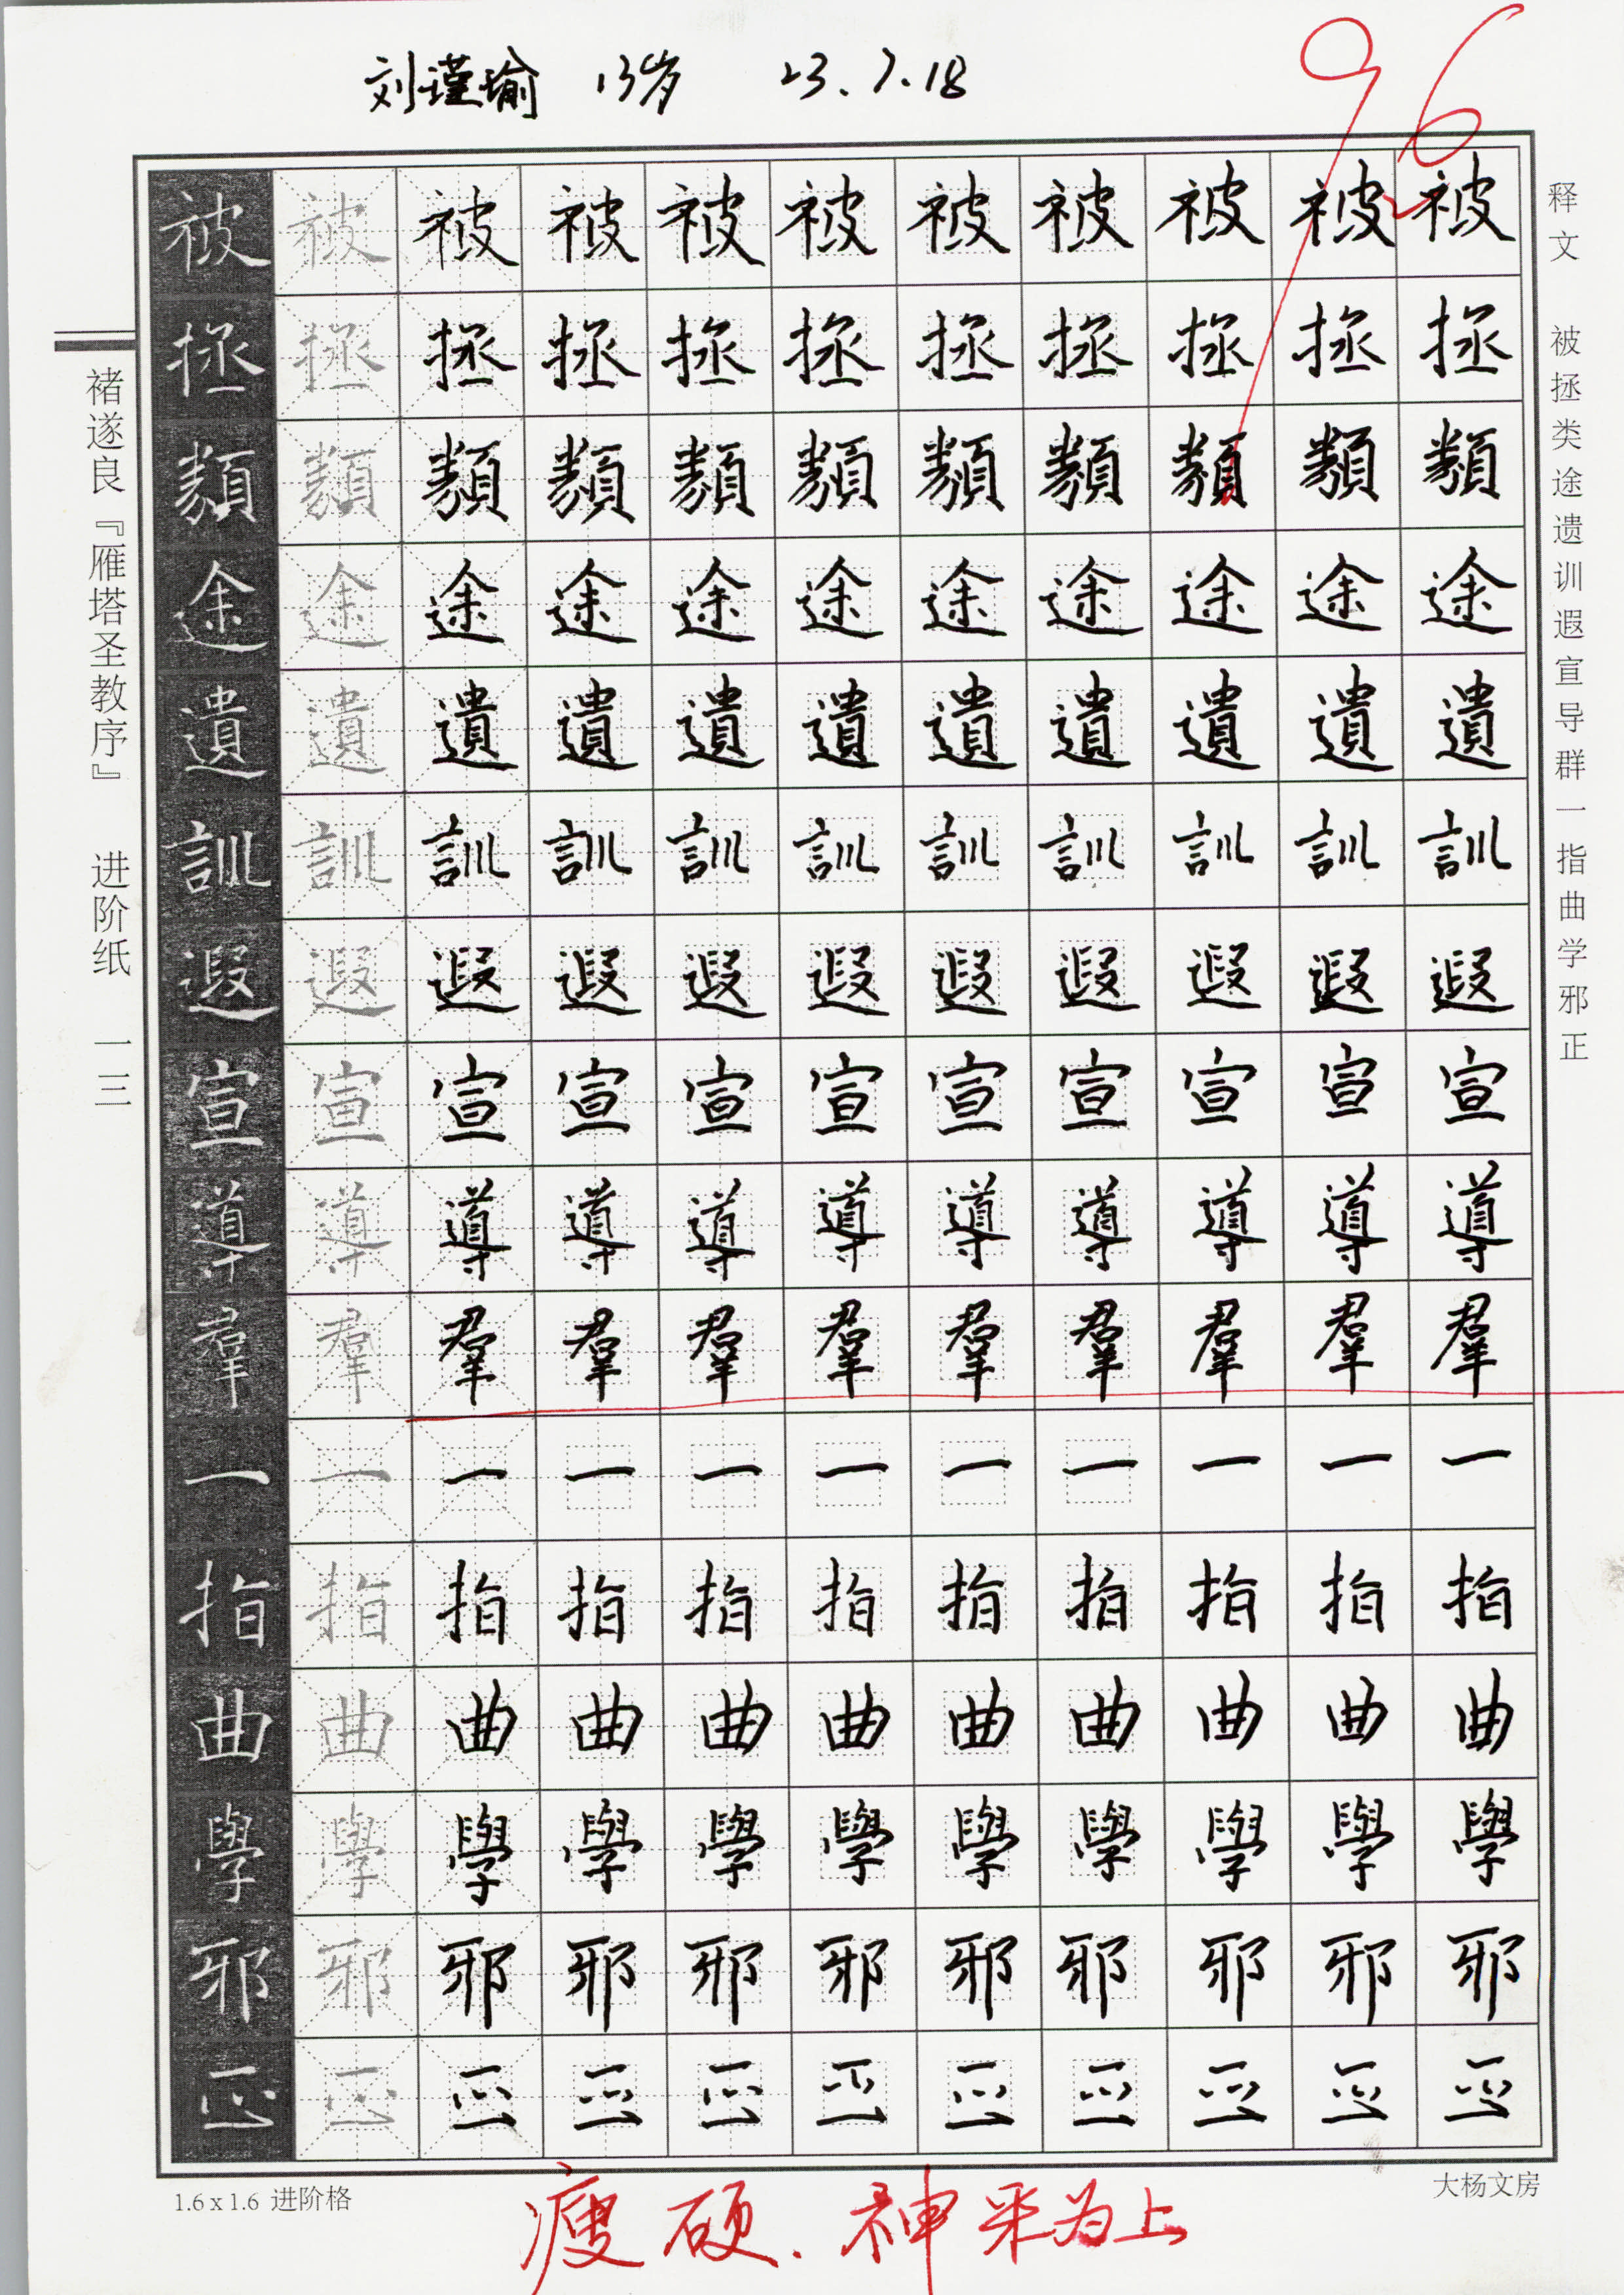 刘瑾瑜 13岁 23.7.18
96
被 被 被 被 被 被 被 被 被 被 被
拯 拯 拯 拯 拯 拯 拯 拯 拯 拯 拯
類 類 類 類 類 類 類 類 類 類 類
途 途 途 途 途 途 途 途 途 途 途
遺 遺 遺 遺 遺 遺 遺 遺 遺 遺 遺
訓 訓 訓 訓 訓 訓 訓 訓 訓 訓 訓
遐 遐 遐 遐 遐 遐 遐 遐 遐 遐 遐
宣 宣 宣 宣 宣 宣 宣 宣 宣 宣 宣
導 導 導 導 導 導 導 導 導 導 導
羣 羣 羣 羣 羣 羣 羣 羣 羣 羣 羣
一 一 一 一 一 一 一 一 一 一 一
指 指 指 指 指 指 指 指 指 指 指
曲 曲 曲 曲 曲 曲 曲 曲 曲 曲 曲
學 學 學 學 學 學 學 學 學 學 學
邪 邪 邪 邪 邪 邪 邪 邪 邪 邪 邪
正 正 正 正 正 正 正 正 正 正 正
释文 被拯类途遗训遐宣导群一指曲学邪正
褚遂良『雁塔圣教序』 进阶纸 一三
1.6 x 1.6 进阶格
大杨文房
瘦硬、神采为上